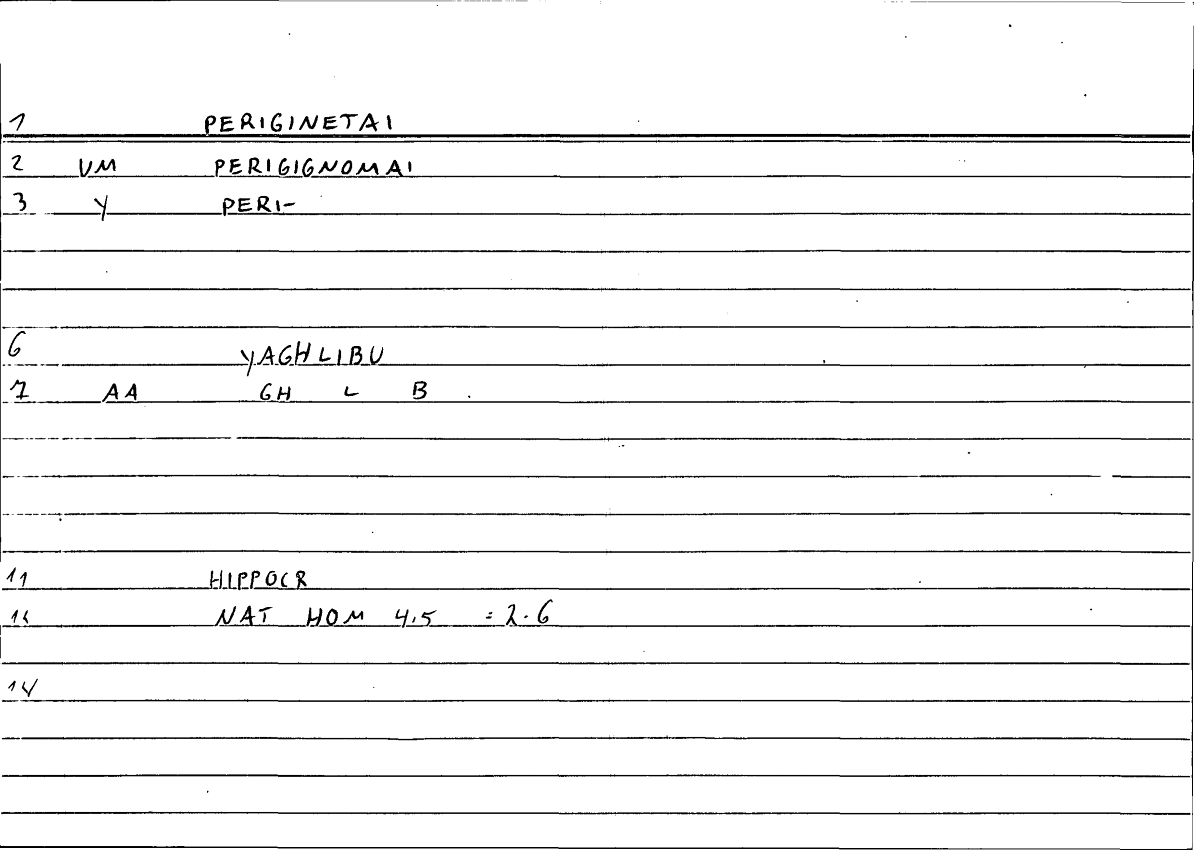 1 PERIGINETAI
2 VM PERIGIGNOMAI
3 Y PERI-
6 YAGHLIBU
7 AA GH L B
11 HIPPOCR
12 NAT HOM 4.5 = 2.6
14